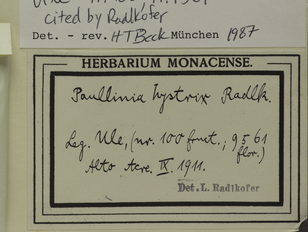 cited by Radlkofer
Det. - rev. HTBeck München 1987
HERBARIUM MONACENSE.
Paullinia hystrix Radlk.
Leg. Ule, (nr. 100 fruct.; 9561 flor.)
Alto Acre. IX. 1911.
Det. L. Radlkofer